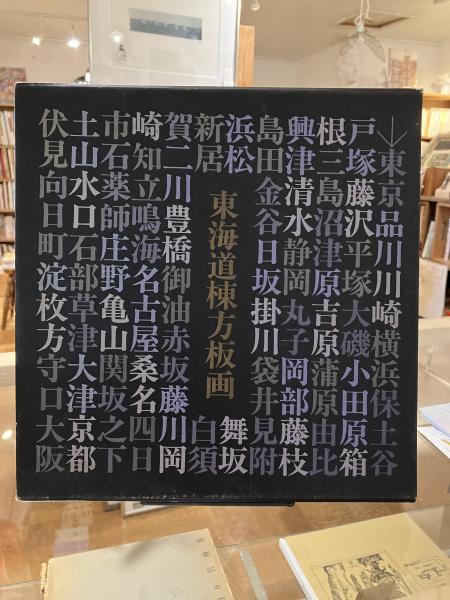 ↓東京品川川崎横浜保土谷
戸塚藤沢平塚大磯小田原箱
根三島沼津原吉原蒲原由比
興津清水静岡丸子岡部藤枝
島田金谷日坂掛川袋井見附
浜松
舞坂
東海道棟方板画
新居
白須
賀二川豊橋御油赤坂藤川岡
崎知立鳴海名古屋桑名四日
市石薬師庄野亀山関坂之下
土山水口石部草津大津京都
伏見向日町淀枚方守口大阪